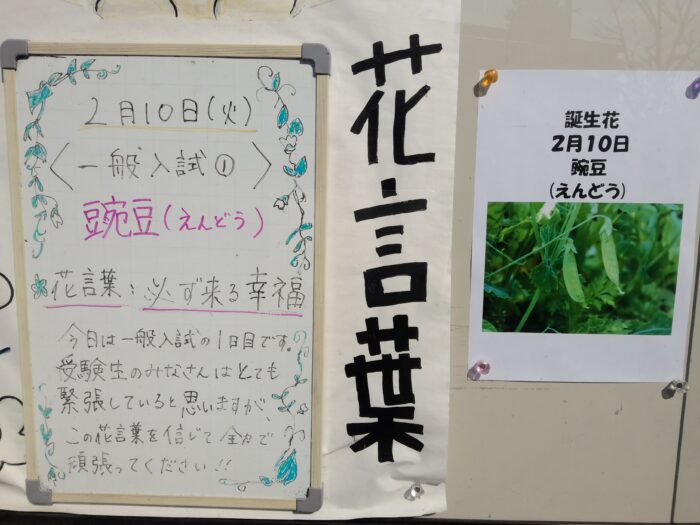 2月10日(火)
〈一般入試①〉
豌豆(えんどう)
花言葉：必ず来る幸福
今日は一般入試の1日目です。
受験生のみなさんはとても
緊張していると思いますが、
この花言葉を信じて全力で
頑張ってください!!
花言葉
誕生花
2月10日
豌豆
(えんどう)